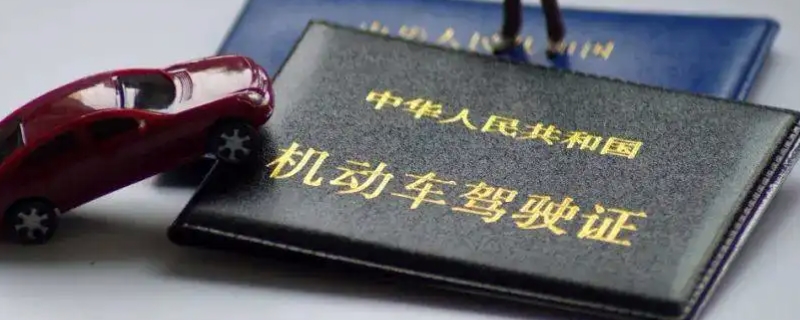 中华人民共和国
中华人民共和国
机动车驾驶证